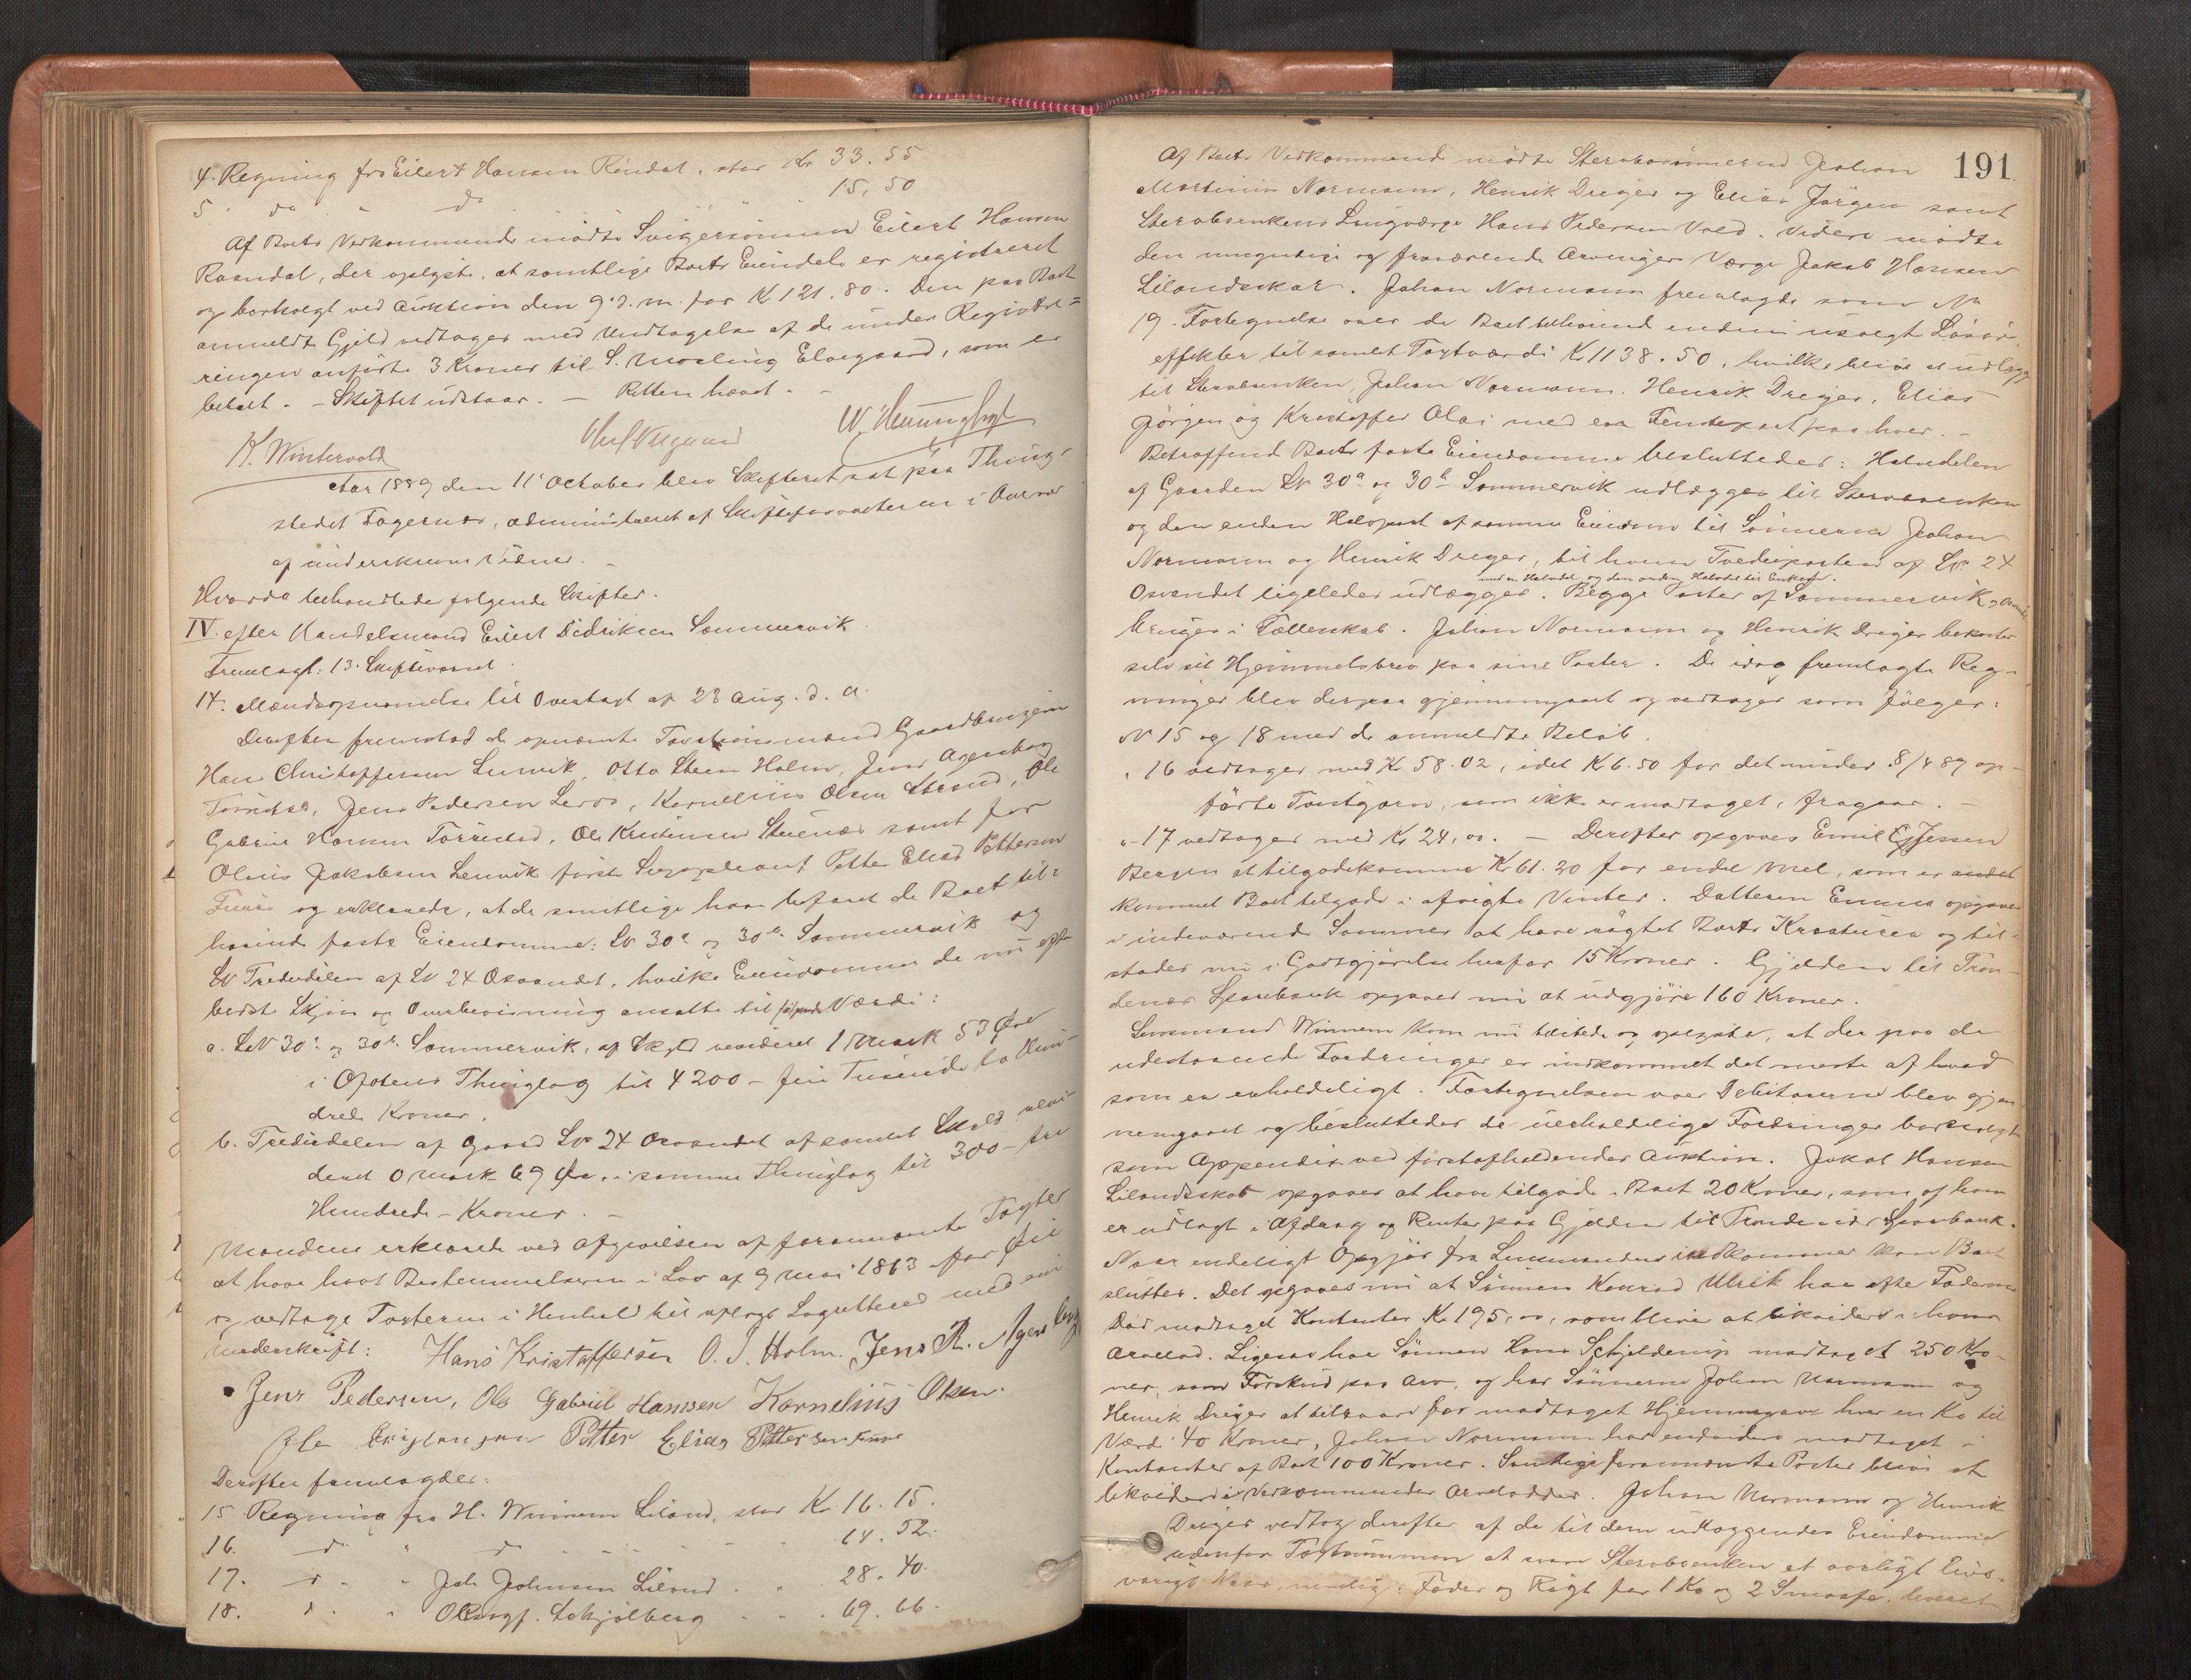 4. Regning fra Eilert Hansen Rindal, stor Kr 33.55
5. do " do 15.50
Af Boets Vedkommende mødte Svigersønnen Eilert Hansen
Raandal, der oplyste, at samtlige Boets Eiendele er registreret
og bortsolgt ved Auktion den 9 d. m. for Kr 121.80. Den paa Boet
anmeldte Gjeld vedtages med Undtagelse af de under Registre=
ringen anførte 3 Kroner til S. Mosling Elvegaard, som er
betalt. - Skiftet udstaar. - Retten hævet. -
K. Wintervold
Aar 1889 den 11 October blev Skifteret sat paa Thing-
stedet Fagernes, administreret af Skifteforvalteren i Overvær
af underskrevne Vidner. -
Hvorda behandledes følgende Skifter.
IV. efter Handelsmand Eilert Didriksen Sommervik
Fremlagt: 13. Skiftevarsel.
14. Mændsopnævnelse til Overtaxt af 23 Aug. d. A.
Derefter fremstod de opnævnte Taxtionsmænd Gaardbrugerne
Hans Christoffersen Lenvik, Otto Steen Holm, Jens Agersborg
Jens Pedersen Leros, Kornelius Olsen Strand, Ole
Gabriel Hansen Torrestad, Ole Kristensen samt for
Olaus Jakobsen Lenvik første Suppleant Petter Elias Pettersen
og erklærede, at de samtlige har befaret de Boet til=
hørende faste Eiendomme: Lb 30a og 30b Sommervik og
Trediedelen af Lb 24 Osvandet, hvilke Eiendomme de nu efter
bedste Skjøn og Overbevisning ansatte til følgende Værdi:
a. LN 30a og 30b Sommervik, af Skyld revideret 1 Mark 53 Øre
i Ofotens Thinglag til 4200 - fire Tusinde to Hun-
drede Kroner.
b. Trediedelen af Gaard LN 24 Osvandet af samlet Skyld revi-
deret 0 Mark 69 Øre i samme Thinglag til 300 - tre
Hundrede - Kroner. -
Mændene erklærede ved Afgivelsen af foranævnte Taxter
at have havt Bestemmelserne i Lov af 9 Mai 1863 for Øie
og vedtage Taxterne i Henhold til aflagt Lagrettesed med sin
Underskrift: Hans Kristoffersen O. S. Holm. Jens R. Agersborg
Jens Pedersen, Ole Gabriel Hansen Kornelius Olsen.
Ole Kristensen Petter Elias Pettersen
Derefter fremlagdes:
15 Regning fra H. Winnem Liland, stor Kr. 16.15.
16. d " d 64.52.
17. d " Joh Johnsen Liland " 28.40.
18. d " Schjølberg " 69.66.
191
Af Boets Vedkommende mødte Stervbosønnerne Johan
Martinius Normann, Henrik Dreyer og Elias Jørgen samt
Stervboenkens Laugværge Hans Pedersen Vold. Videre mødte
den umyndige og fraværende Arvinges Værge Jakob Hansen
Lilandskar. Johan Normann fremlagde som No
19. Fortegnelse over de Boet tilhørende endnu usolgte Løsøre-
effekter til samlet Taxtværdi Kr 1138.50, hvilke bliver at udlægge
til Stervboenken, Johan Normann, Henrik Dreyer, Elias
Jørgen og Kristoffer Olai med en Femtepart paa hver. -
Betræffende Boets faste Eiendomme besluttedes: Halvdelen
af Gaarden LN 30a og 30b Sommervik udlægges til Stervboenken
og den anden Halvpart af samme Eiendom til Sønnerne Johan
Normann og Henrik Dreyer, til hvem Trediеparten af LN 24
med en Halvdel og den anden Halvdel til Enken.
Osvandet ligeledes udlægges. Begge Parter af Sommervik
bruges i Fællesskab. Johan Normann og Henrik Dreyer bekoster
selv sit Hjemmelsbrev paa sine Parter. De idag fremlagte Reg-
ninger blev derpaa gjennemgaaet og vedtages som følger:
N 15 og 18 med de anmeldte Beløb.
" 16 vedtages med Kr 58.02, idet Kr 6.50 for det under 8/4 89 op-
førte Tvistgarn, som ikke er modtaget, fragaar. -
" 17 vedtages med Kr 24,00. - Derefter opgaves Emil Jessen
Bergen at tilgodekomme Kr 61.30 for endel Mel, som er
kommet Boet tilgode i afvigte Vinter. Datteren Emma opgaves
i indeværende Sommer at have røgtet Boets Kreaturer og til-
stodes nu i Godtgjørelse herfor 15 Kroner. Gjælden til Tron-
denæs Sparebank opgaves nu at udgjøre 160 Kroner.
Lensmand Winnem kom nu tilstede og oplyste, at der paa de
udestaaende Fordringer er indkommet det meste af hvad
som er erholdeligt. Fortegnelsen over Debitorerne blev gjen-
nemgaaet og besluttedes de uerholdelige Fordringer bortsolgt
som Appendix ved førstafholdendes Auktion. Jakob Hansen
Lilandskar opgaves at have tilgode i Boet 20 Kroner, som af ham
er udlagt i Afdrag og Renter paa Gjælden til Trondenæs Sparebank.
Naar endeligt Opgjør fra Lensmanden indkommer kan Boet
sluttes. Det opgaves nu at Sønnen Konrad Ulrik har efter Faderens
Død modtaget Kontanter Kr 195,00, som bliver at likvidere i hans
Arvelod. Ligesaa har Sønnen Hans Schjelderup modtaget 250 Kro-
ner, som Forskud paa Arv, og har Sønnerne Johan Normann og
Henrik Dreyer at tilsvare for modtaget Hjemmegave hver en Ko til
Værdi 40 Kroner, Johan Normann har endvidere modtaget i
Kontanter af Boet 100 Kroner. Samtlige foranævnte Poster bliver at
likvidere i Vedkommendes Arvelodder. Johan Normann og Henrik
Dreyer vedtog derefter af de til dem udlæggendes Eiendomme
udenfor Taxtsummen at svare Stervboenken et aarligt livs-
varigt Kaar, nemlig: Foder og Røgt for 1 Ko og 2 Smaafe, leveret